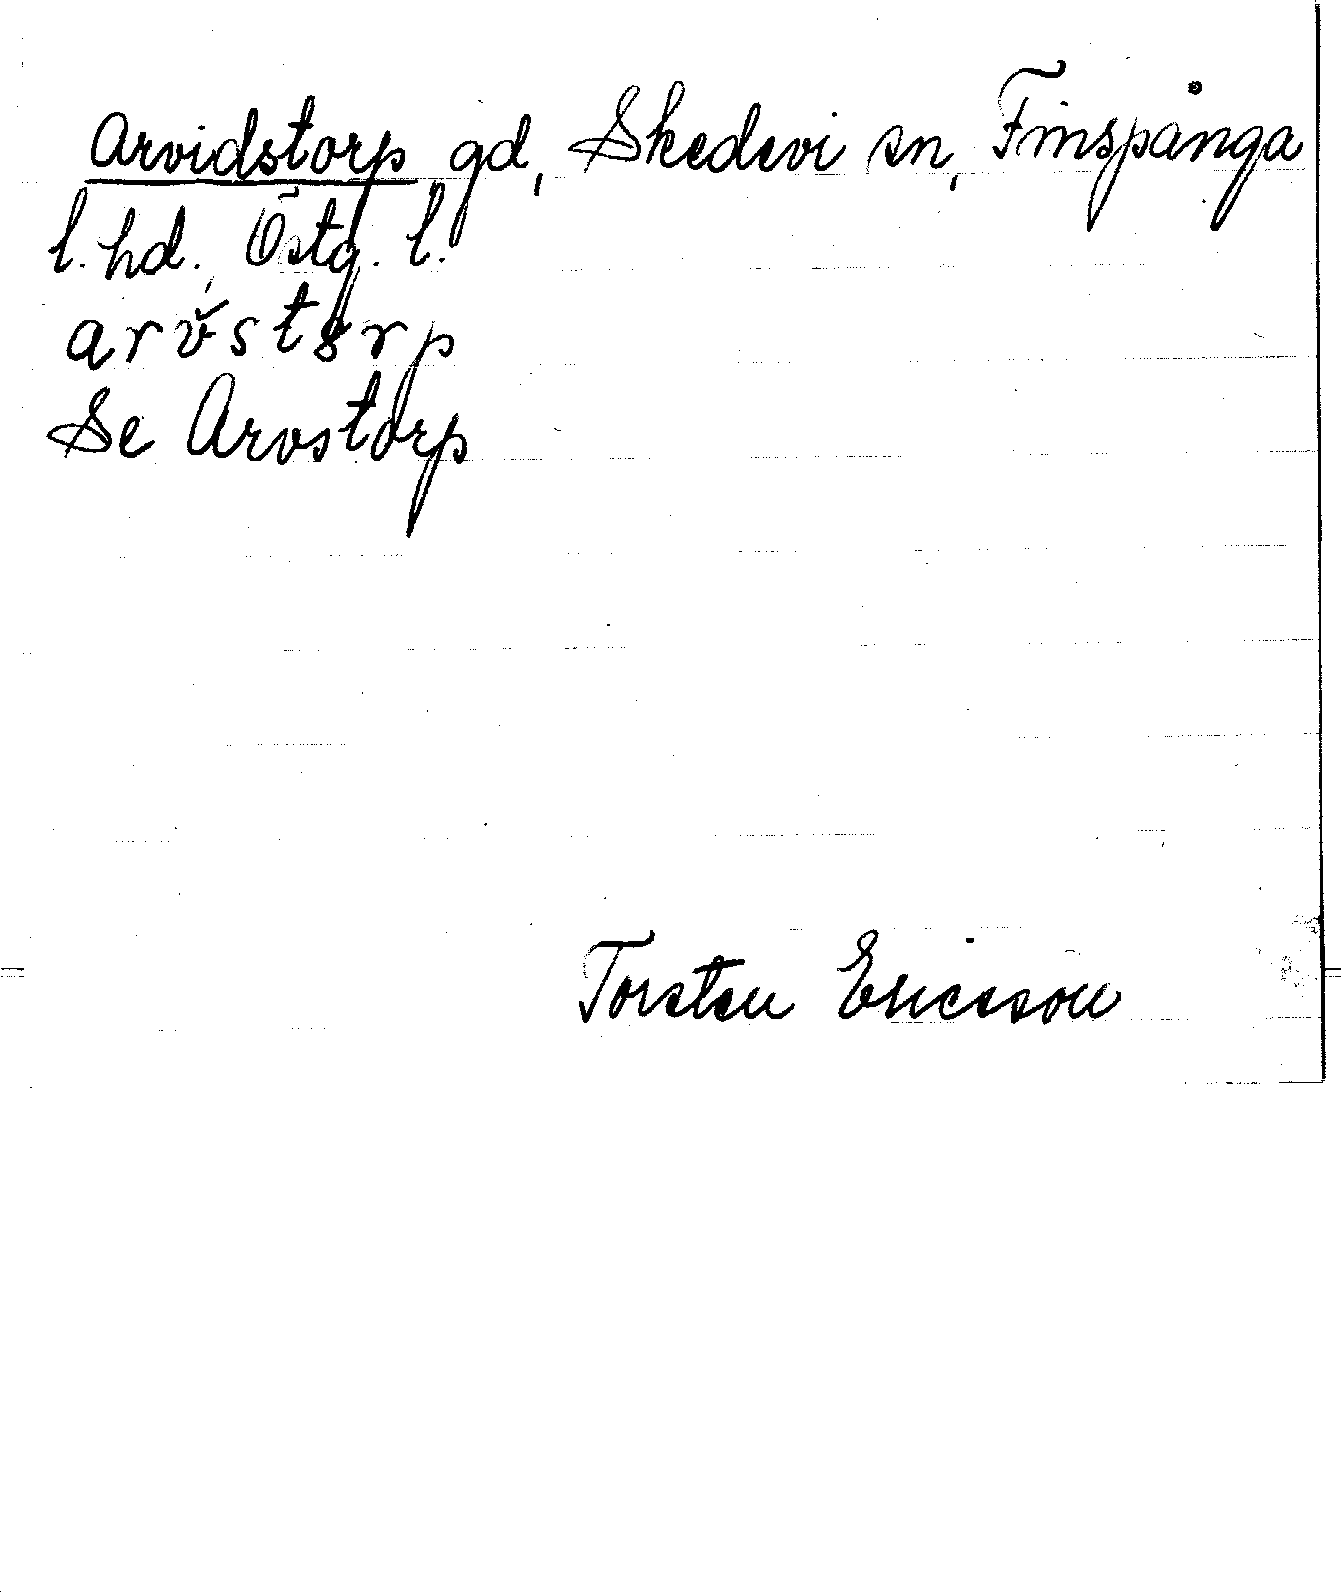 Arvidstorp gd, Skedevi sn, Finspånga
l. hd., Östg. l.
arv̌storp
Se Arvstorp
Torsten Ericsson